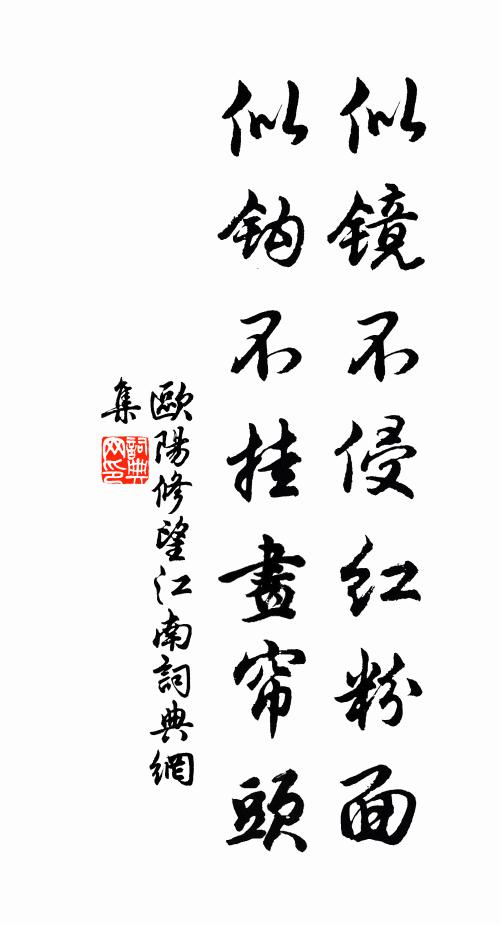 似镜不侵红粉面
似钩不挂畫帘頭
歐陽修望江南詞典網
集
詞典网印